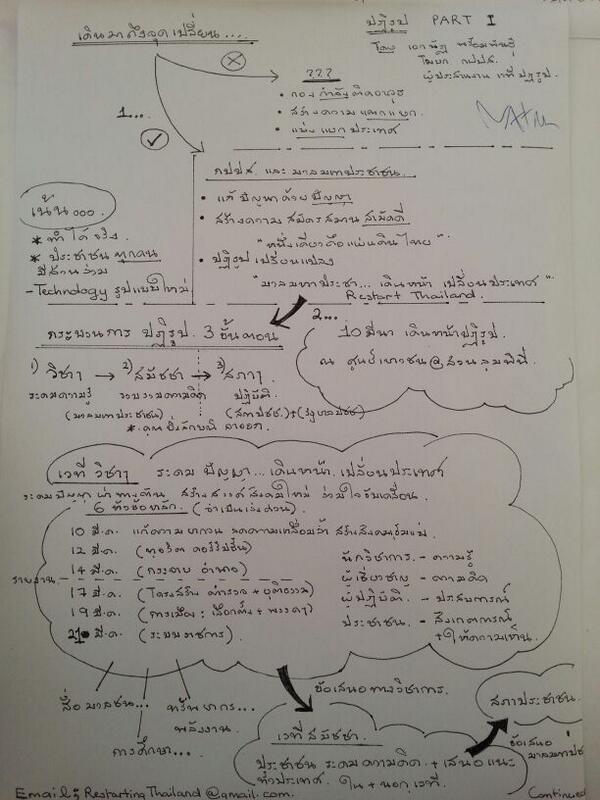 เดินมาถึงจุดเปลี่ยน....
ปฏิรูป PART I
โดย เอกนัฏ พร้อมพันธุ์
โฆษก กปปส.
ผู้ประสานงาน เวทีปฏิรูป.
???
• กองกำลังติดอาวุธ
• สร้างความแตกแยก.
• แบ่งแยกประเทศ
1...
กปปส. และ มวลมหาประชาชน.
• แก้ปัญหาด้วยปัญญา
• สร้างความสมัครสมานสามัคคี
"หนึ่งเดียวคือแผ่นดินไทย"
• ปฏิรูปเปลี่ยนแปลง
"มวลมหาประชา... เดินหน้า เปลี่ยนประเทศ"
Restart Thailand.
เน้น...
* ทำได้จริง
* ประชาชนทุกคน
มีส่วนร่วม
- Technology รูปแบบใหม่
กระบวนการ ปฏิรูป. 3 ขั้นตอน
1) วิชาฯ → 2) สมัชชา → 3) สภาฯ
ระดมความรู้ รวบรวมความคิด ปฏิบัติ
(มวลมหาประชาชน) (สภาปชช.)+(รัฐบาลปชช)
2...
10 มีนา เดินหน้าปฏิรูป.
ณ ศูนย์เยาวชน@สวนลุมพินี.
เวทีวิชาฯ ระดมปัญญา... เดินหน้า เปลี่ยนประเทศ
ระดมปัญญา สร้างสรรค์สังคมใหม่ ร่วมใจขับเคลื่อน.
6 หัวข้อหลัก. (จำเป็นเร่งด่วน)
10 มี.ค. แก้ความยากจน ลดความเหลื่อมล้ำ
12 มี.ค. (ทุจริต คอร์รัปชั่น)
14 มี.ค. (กระจายอำนาจ)
รายงาน.
17 มี.ค. (โครงสร้างตำรวจ + ยุติธรรม)
19 มี.ค. (การเมือง : เลือกตั้ง + พรรคฯ)
21 มี.ค. (ระบบราชการ).
นักวิชาการ. - ความรู้
ผู้เชี่ยวชาญ - ความคิด
ผู้ปฏิบัติ. - ประสบการณ์
ประชาชน. - สังเกตการณ์
+ให้ความเห็น.
สื่อมวลชน...
การศึกษา...
ทรัพยากร...
พลังงาน.
ข้อเสนอทางวิชาการ.
เวทีสมัชชา.
ประชาชนระดมความคิด + เสนอแนะ
ทั่วประเทศ. ใน + นอกเวที.
สภาประชาชน.
ข้อเสนอ
Email; RestartingThailand@gmail.com.
Continued